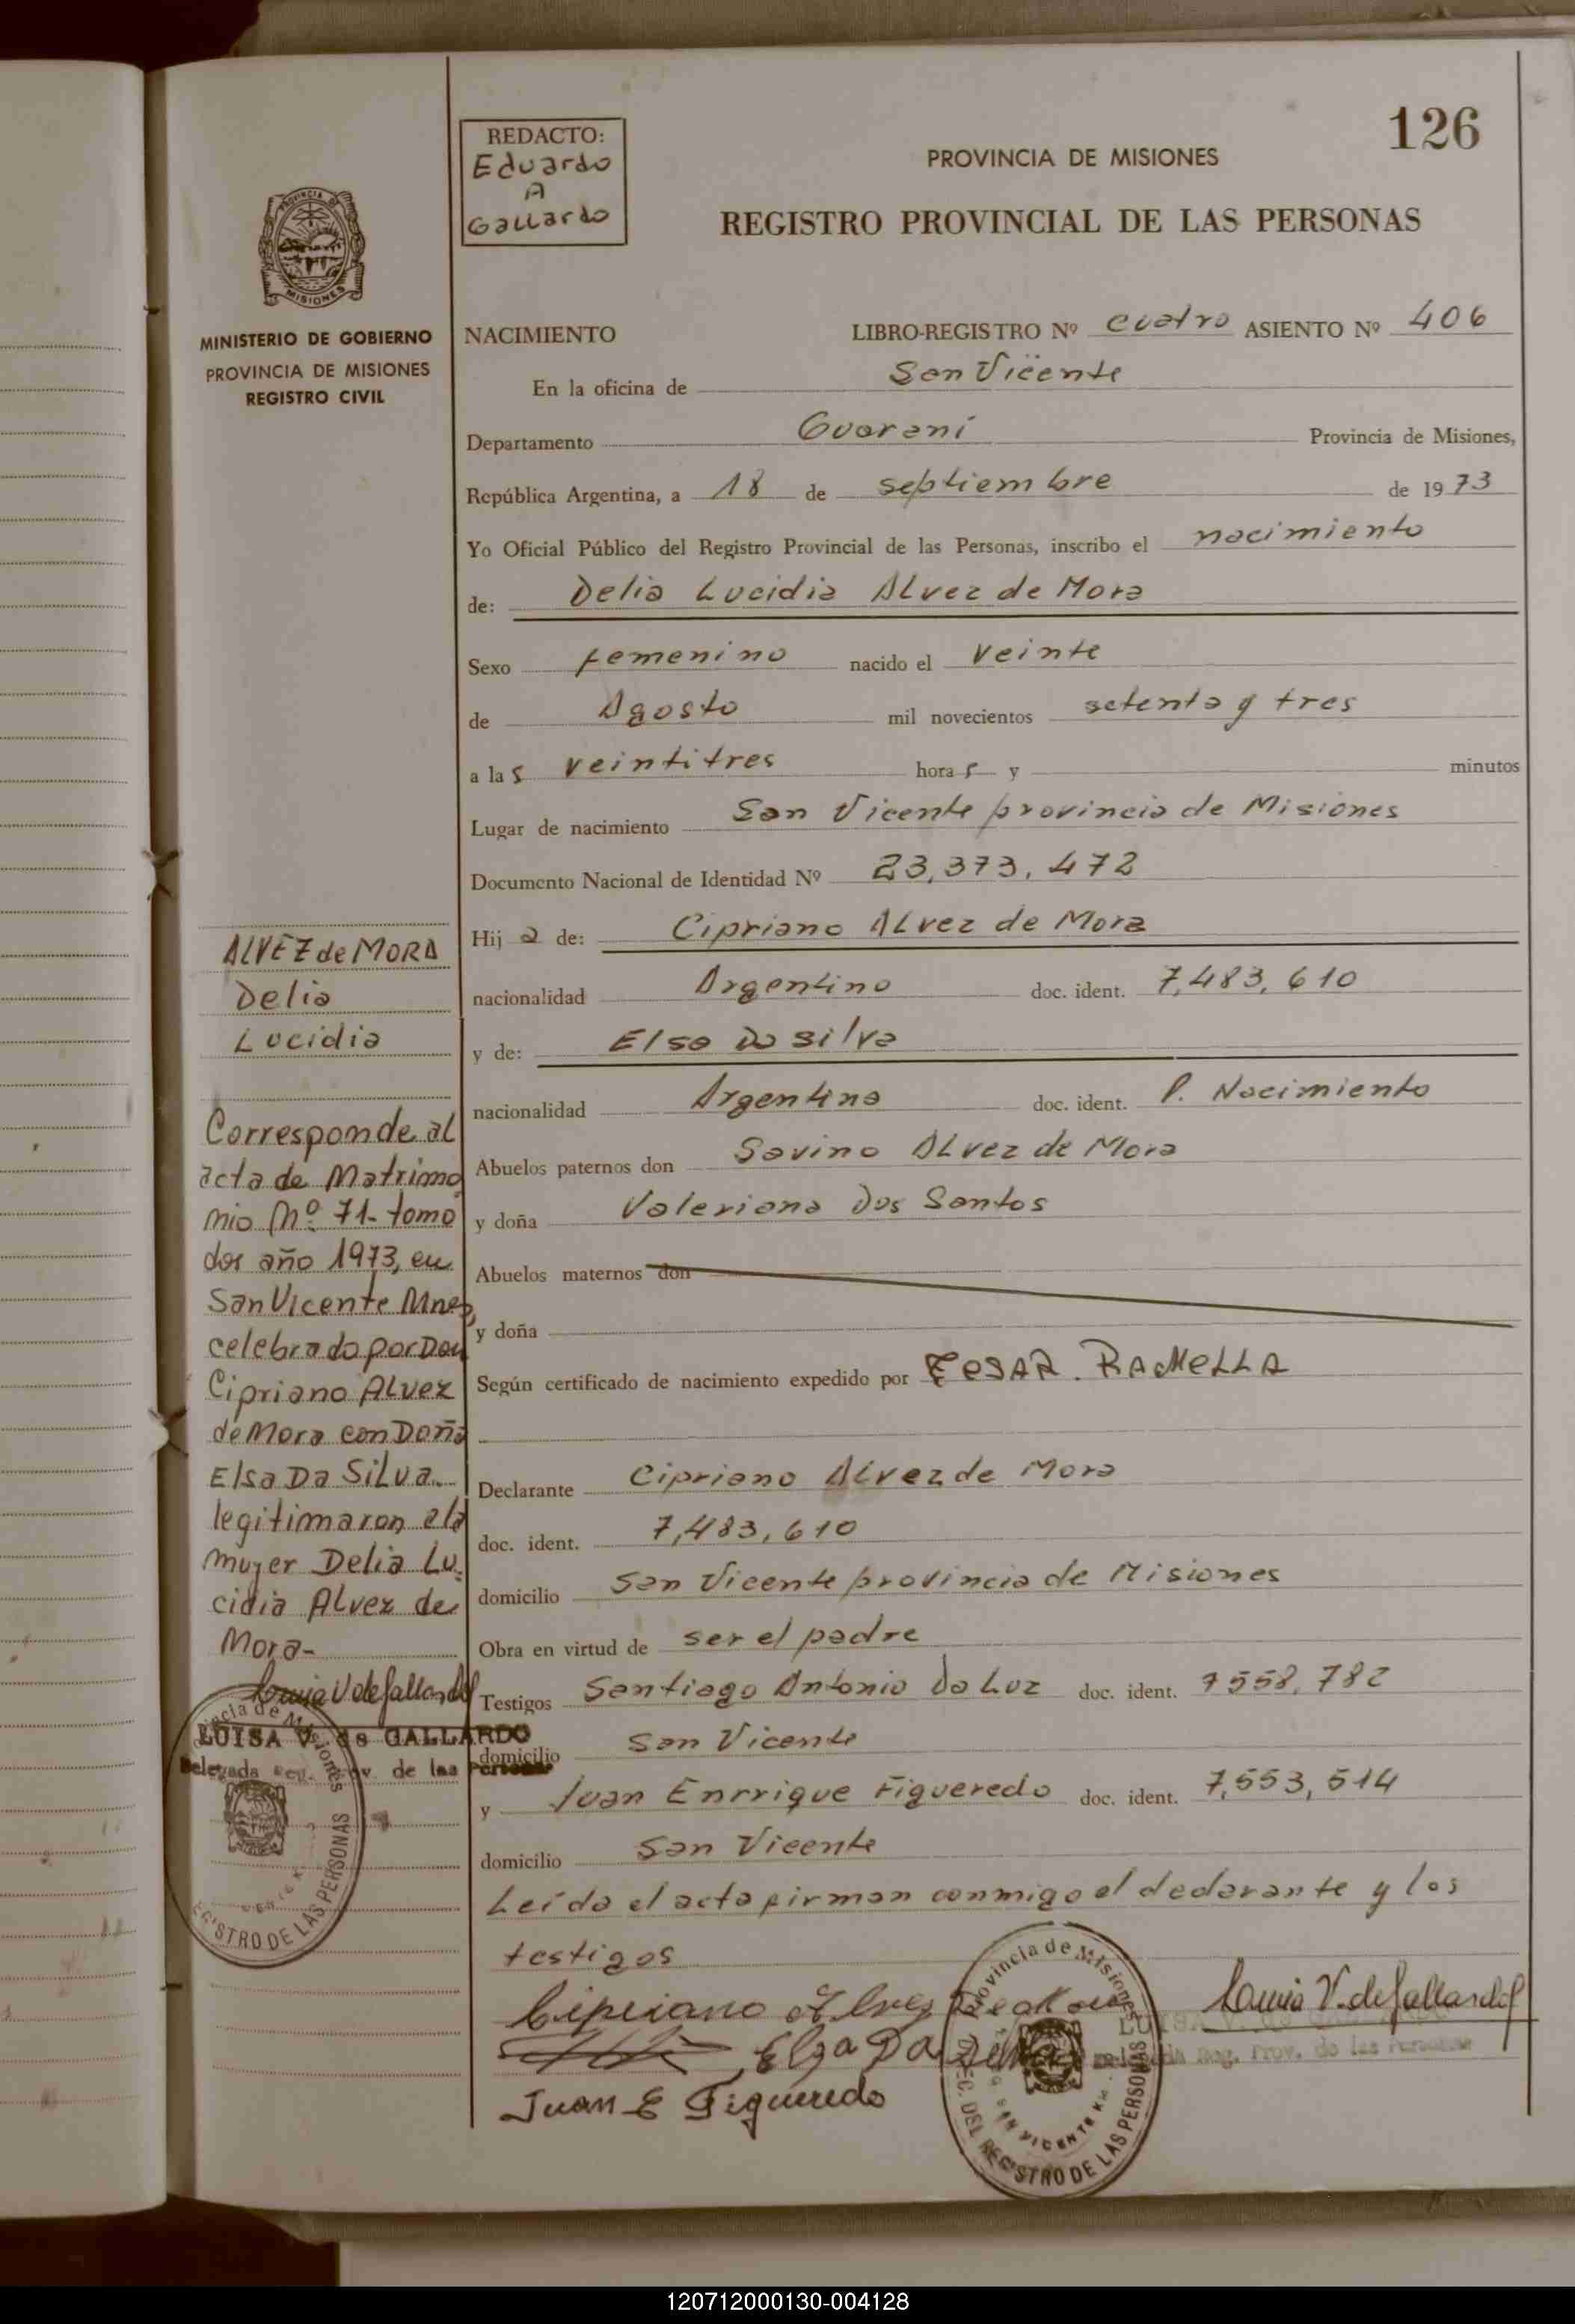 126
REDACTO:
Eduardo
A
Gallardo
PROVINCIA DE MISIONES
REGISTRO PROVINCIAL DE LAS PERSONAS
PROVINCIA DE
MISIONES
MINISTERIO DE GOBIERNO
PROVINCIA DE MISIONES
REGISTRO CIVIL
NACIMIENTO LIBRO-REGISTRO Nº cuatro ASIENTO Nº 406
En la oficina de San Vicente
Departamento Guaraní Provincia de Misiones,
República Argentina, a 18 de septiembre de 1973
Yo Oficial Público del Registro Provincial de las Personas, inscribo el nacimiento
de: Delia Lucidia Alvez de Mora
Sexo femenino nacido el veinte
de Agosto mil novecientos setenta y tres
a las veintitres horas y minutos
Lugar de nacimiento San Vicente provincia de Misiones
Documento Nacional de Identidad Nº 23,373,472
Hija de: Cipriano Alvez de Mora
nacionalidad Argentino doc. ident. 7,483,610
y de: Elsa Da Silva
nacionalidad Argentina doc. ident. P. Nacimiento
Abuelos paternos don Savino Alvez de Mora
y doña Valeriana Dos Santos
Abuelos maternos don
y doña
Según certificado de nacimiento expedido por CESAR. RAMELLA
Declarante Cipriano Alvez de Mora
doc. ident. 7,483,610
domicilio San Vicente provincia de Misiones
Obra en virtud de ser el padre
Testigos Santiago Antonio Da Luz doc. ident. 7558,782
domicilio San Vicente
y Juan Enrrique Figueredo doc. ident. 7,553,514
domicilio San Vicente
Leída el acta firman conmigo el declarante y los
testigos
Cipriano Alvez De Mora
Elsa Da Silva
Juan E Figueredo
Luisa V. de Gallardo
LUISA V. de GALLARDO
Delegada Reg. Prov. de las Personas
Provincia de Misiones
DEC. DEL REGISTRO DE LAS PERSONAS
SAN VICENTE
ALVEZ de MORA
Delia
Lucidia
Corresponde al
acta de Matrimo
nio Nº 71- tomo
dos año 1973, en
San Vicente Mnes,
celebrado por Don
Cipriano Alvez
de Mora con Doña
Elsa Da Silva.
legitimaron a la
mujer Delia Lu-
cidia Alvez de
Mora-
Luisa V de Gallardo
LUISA V. de GALLARDO
Delegada Reg. Prov. de las Personas
Provincia de Misiones
REGISTRO DE LAS PERSONAS
120712000130-004128